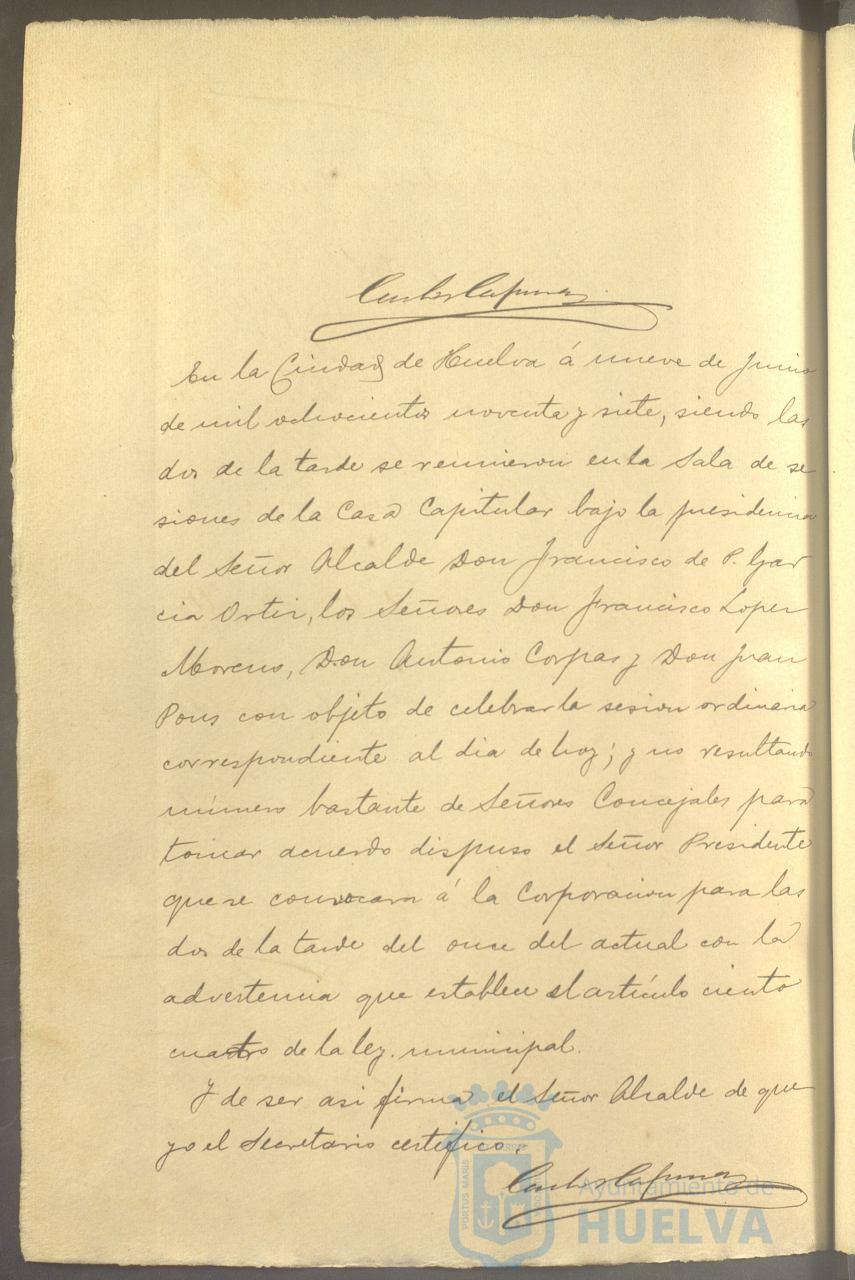 En la Ciudad de Huelva á nueve de Junio
de mil ochocientos noventa y siete, siendo las
dos de la tarde se reunieron en la Sala de se
siones de la Casa Capitular bajo la presidencia
del Señor Alcalde Don Francisco de P. Gar
cia Ortiz, los Señores Don Francisco Lopez
Moreno, Don Antonio Corpas y Don Juan
Pons con objeto de celebrar la sesion ordinaria
correspondiente al dia de hoy; y no resultando
número bastante de Señores Concejales para
tomar acuerdo dispuso el Señor Presidente
que se convocara á la Corporacion para las
dos de la tarde del once del actual con la
advertencia que establece el artículo ciento
cuatro de la ley municipal.
Y de ser asi firma el Señor Alcalde de que
yo el Secretario certifico.
PORTUS MARIS
Ayuntamiento de
HUELVA